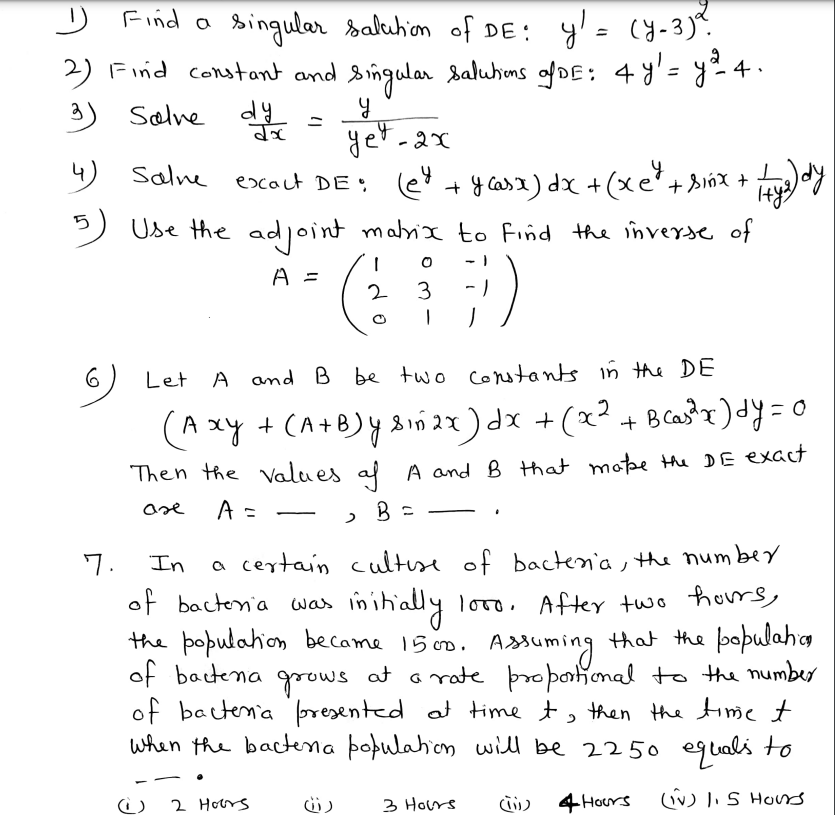 1) Find a singular salution of DE: y' = (y-3)².
2) Find constant and singular salutions of DE: 4y' = y²-4.
3) Solve dy/dx = y/(ye^y - 2x)
4) Solve exact DE: (e^y + y cos x) dx + (x e^y + sin x + 1/(1+y²)) dy
5) Use the adjoint matrix to find the inverse of
A = ( 1 0 -1
2 3 -1
0 1 1 )
6) Let A and B be two constants in the DE
(A xy + (A+B) y sin 2x) dx + (x² + B cos²x) dy = 0
Then the values of A and B that make the DE exact
are A = — , B = — .
7. In a certain culture of bacteria, the number
of bacteria was initially 1000. After two hours,
the population became 1500. Assuming that the population
of bacteria grows at a rate proportional to the number
of bacteria presented at time t, then the time t
when the bacteria population will be 2250 equals to
— — .
(i) 2 Hours (ii) 3 Hours (iii) 4 Hours (iv) 1.5 Hours